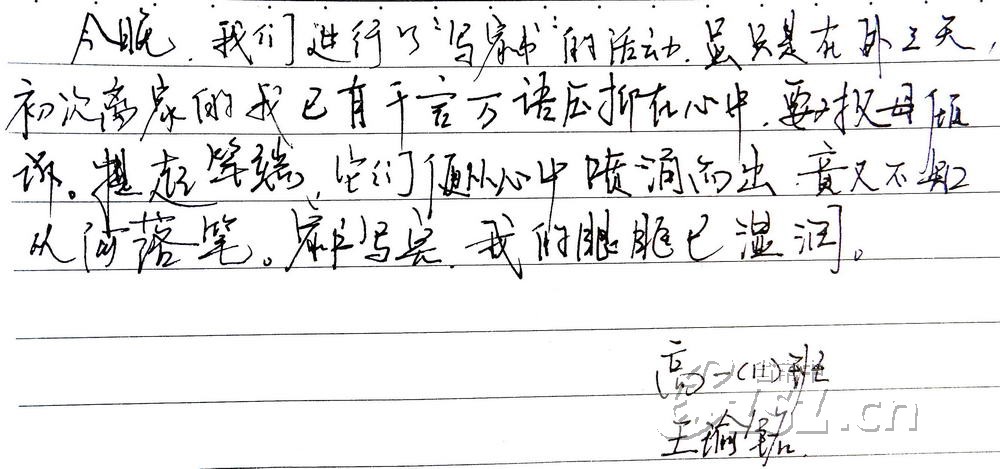 今晚，我们进行了“写家书”的活动。虽只是在外三天，
初次离家的我已有千言万语压抑在心中，要对父母倾
诉。提起笔端，它们便从心中喷涌而出，竟又不知
从何落笔。家书写完，我的眼眶已湿润。
高一(11)班
王瑜
.cn